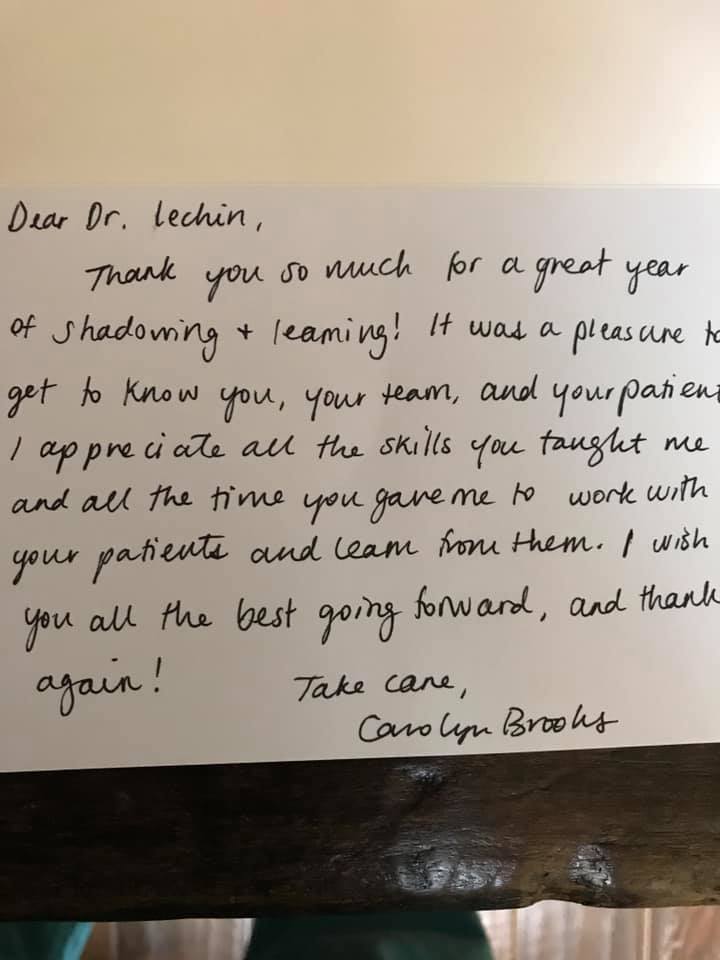 Dear Dr. Lechin,
Thank you so much for a great year
of shadowing + learning! It was a pleasure to
get to know you, your team, and your patient
I appreciate all the skills you taught me
and all the time you gave me to work with
your patients and learn from them. I wish
you all the best going forward, and thank
again!
Take care,
Carolyn Brooks